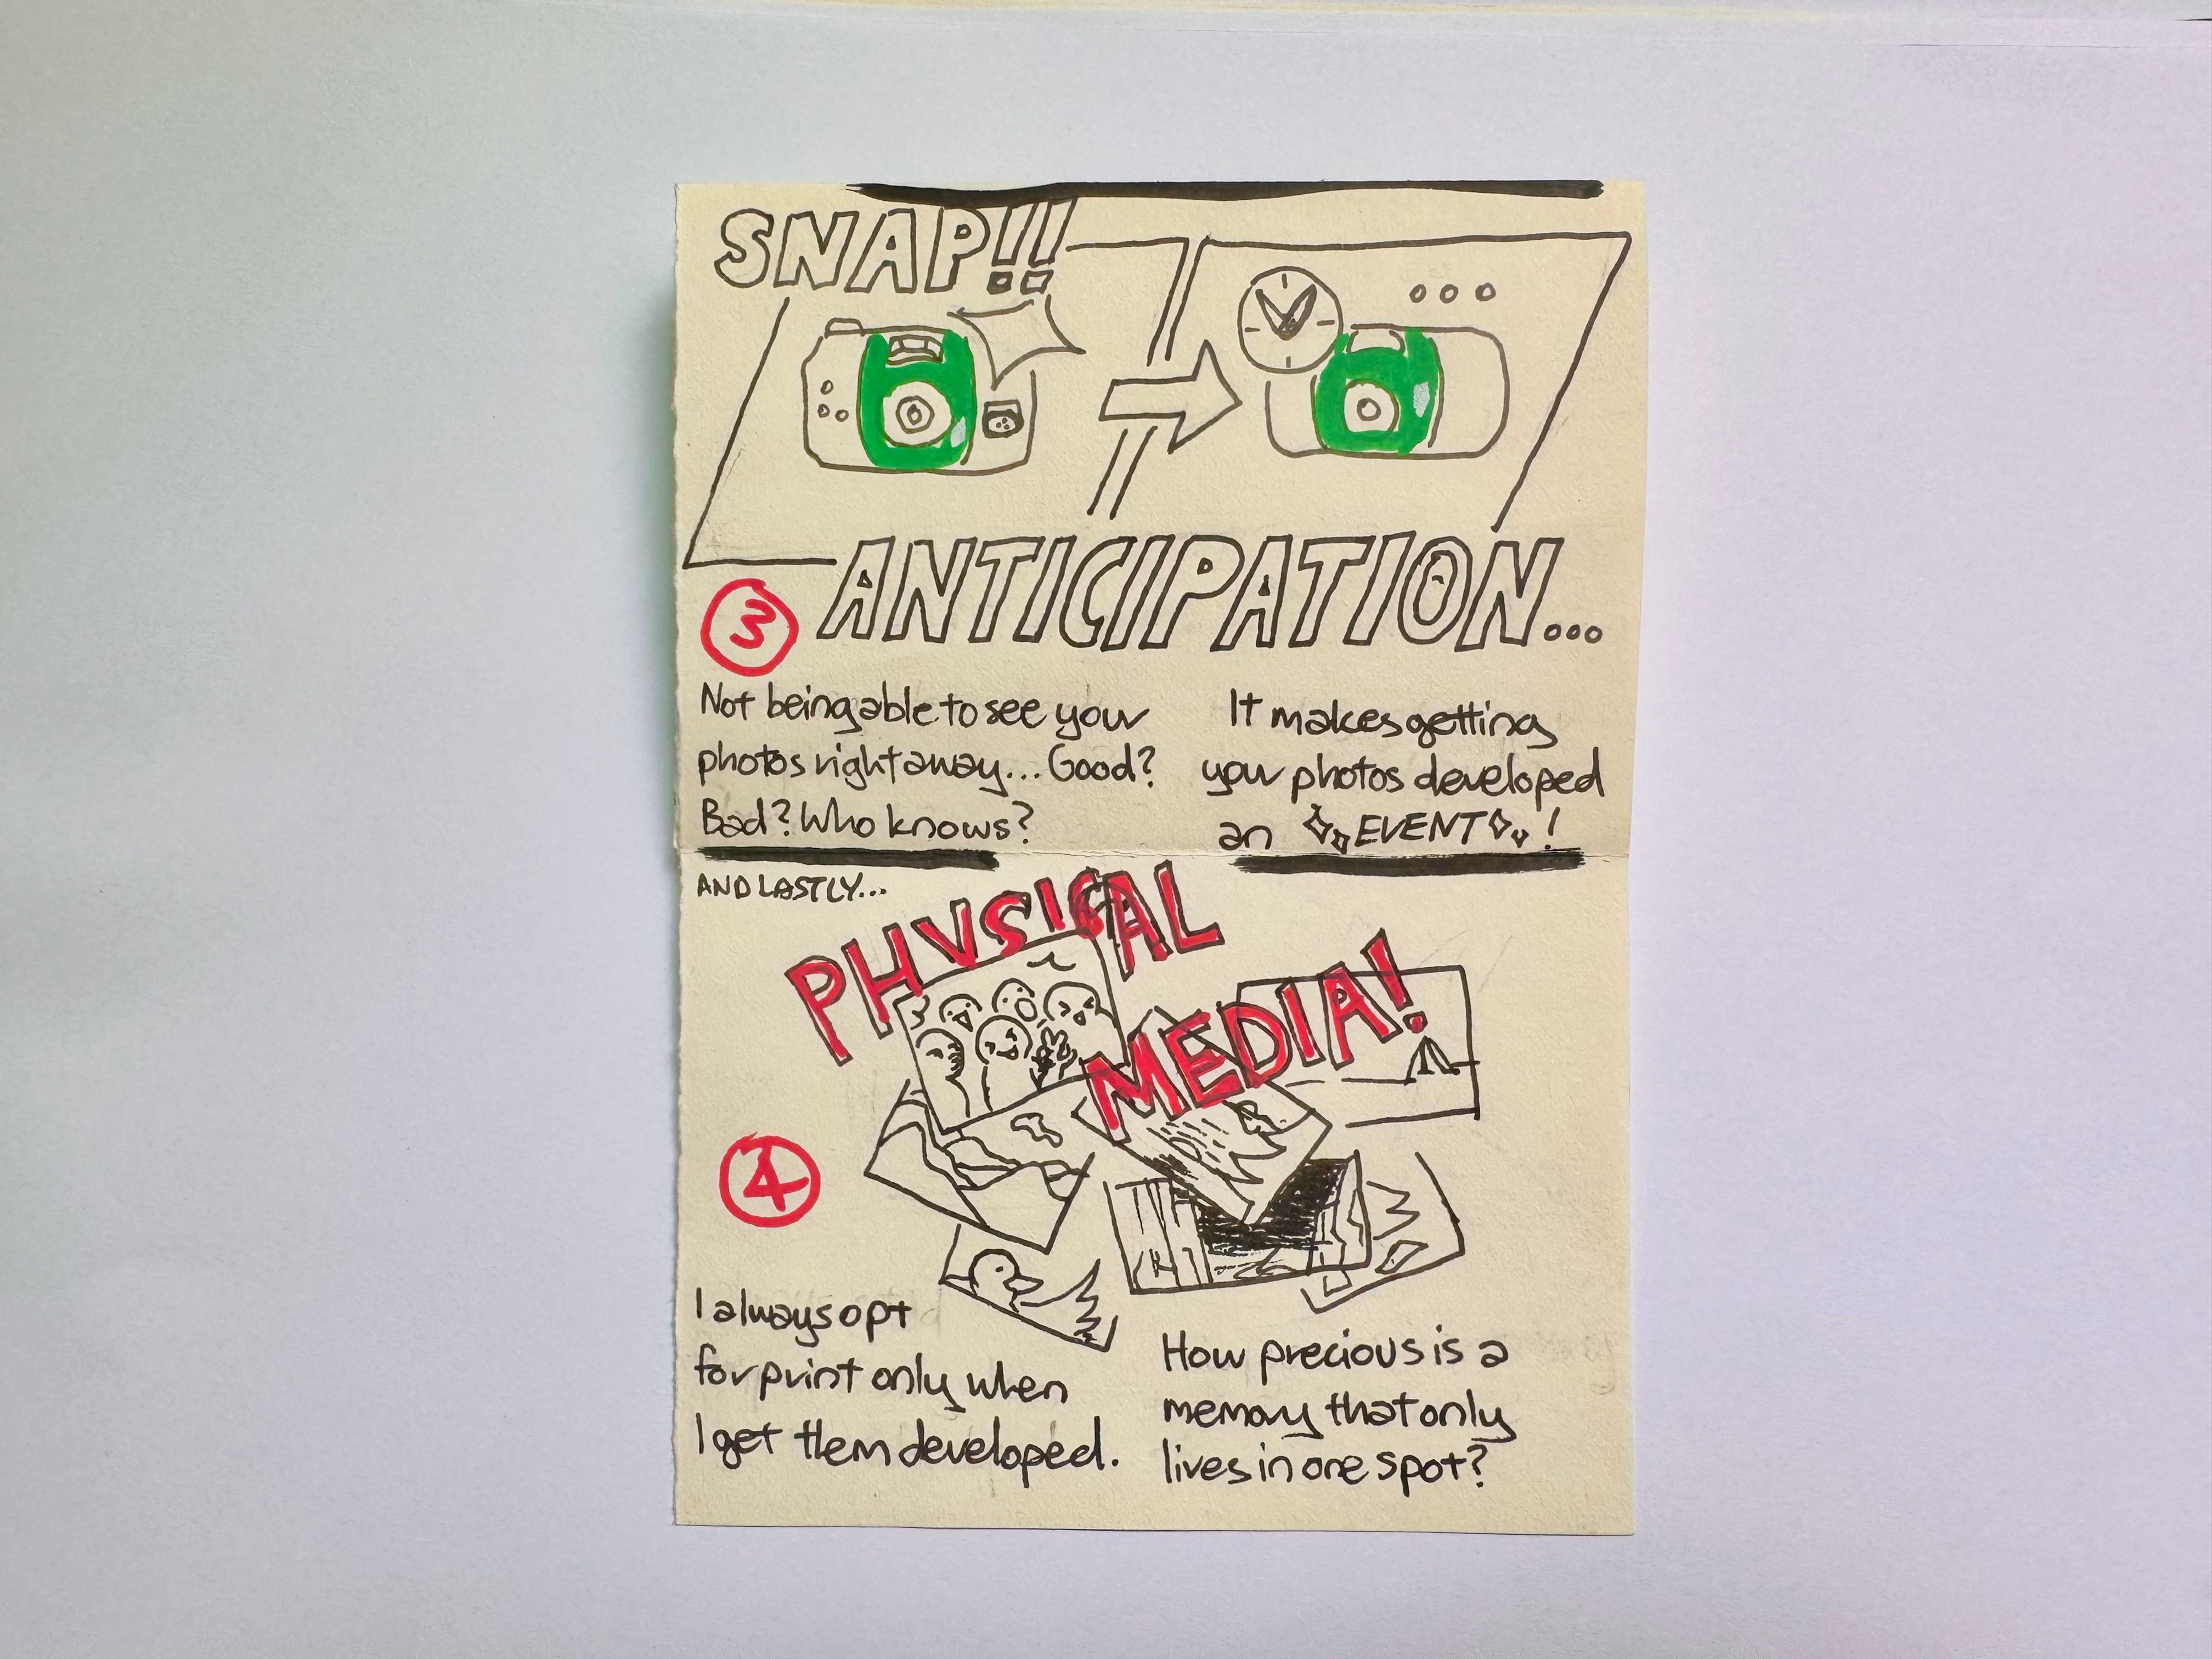 SNAP!!
...
ANTICIPATION...
3
Not being able to see your
photos right away... Good?
Bad? Who knows?
It makes getting
your photos developed
an EVENT!
AND LASTLY...
PHYSICAL
MEDIA!
4
I always opt
for print only when
I get them developed.
How precious is a
memory that only
lives in one spot?